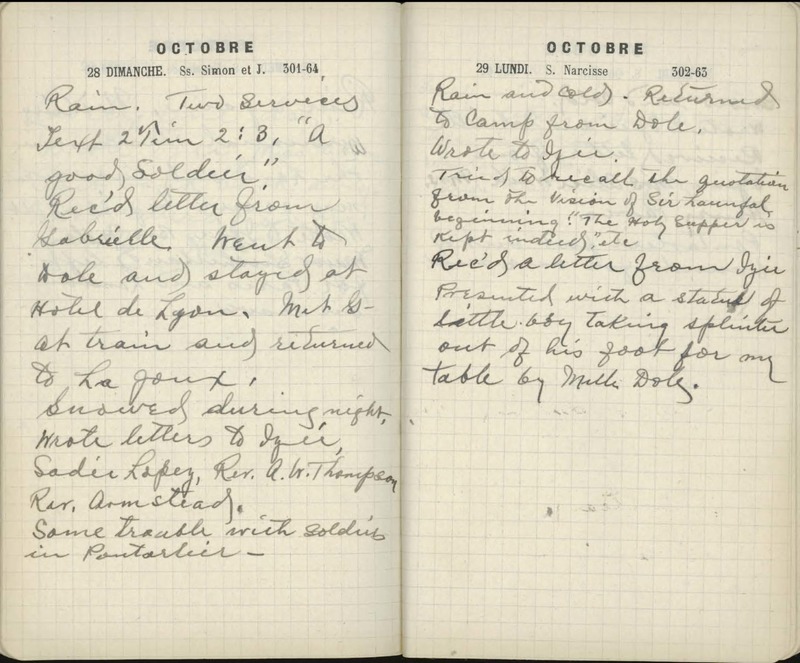 OCTOBRE
28 DIMANCHE. Ss. Simon et J. 301-64
Rain. Two services
Text 2 Tim 2:3, "A
good Soldier"
Rec'd letter from
Gabrielle. Went to
Dole and stayed at
Hotel de Lyon. Met G-
at train and returned
to La Joux.
Snowed during night.
Wrote letters to Izie,
Sadie Lopez, Rev. A.W. Thompson
Rev. Armstead.
Some trouble with soldiers
in Pontarlier -
OCTOBRE
29 LUNDI. S. Narcisse 302-63
Rain and cold. Returned
to Camp from Dole.
Wrote to Izie.
Tried to recall the quotation
from the Vision of Sir Launfal,
beginning: "The Holy Supper is
kept indeed," etc
Rec'd a letter from Izie
Presented with a statue of
little boy taking splinter
out of his foot for my
table by Mlle Dole.